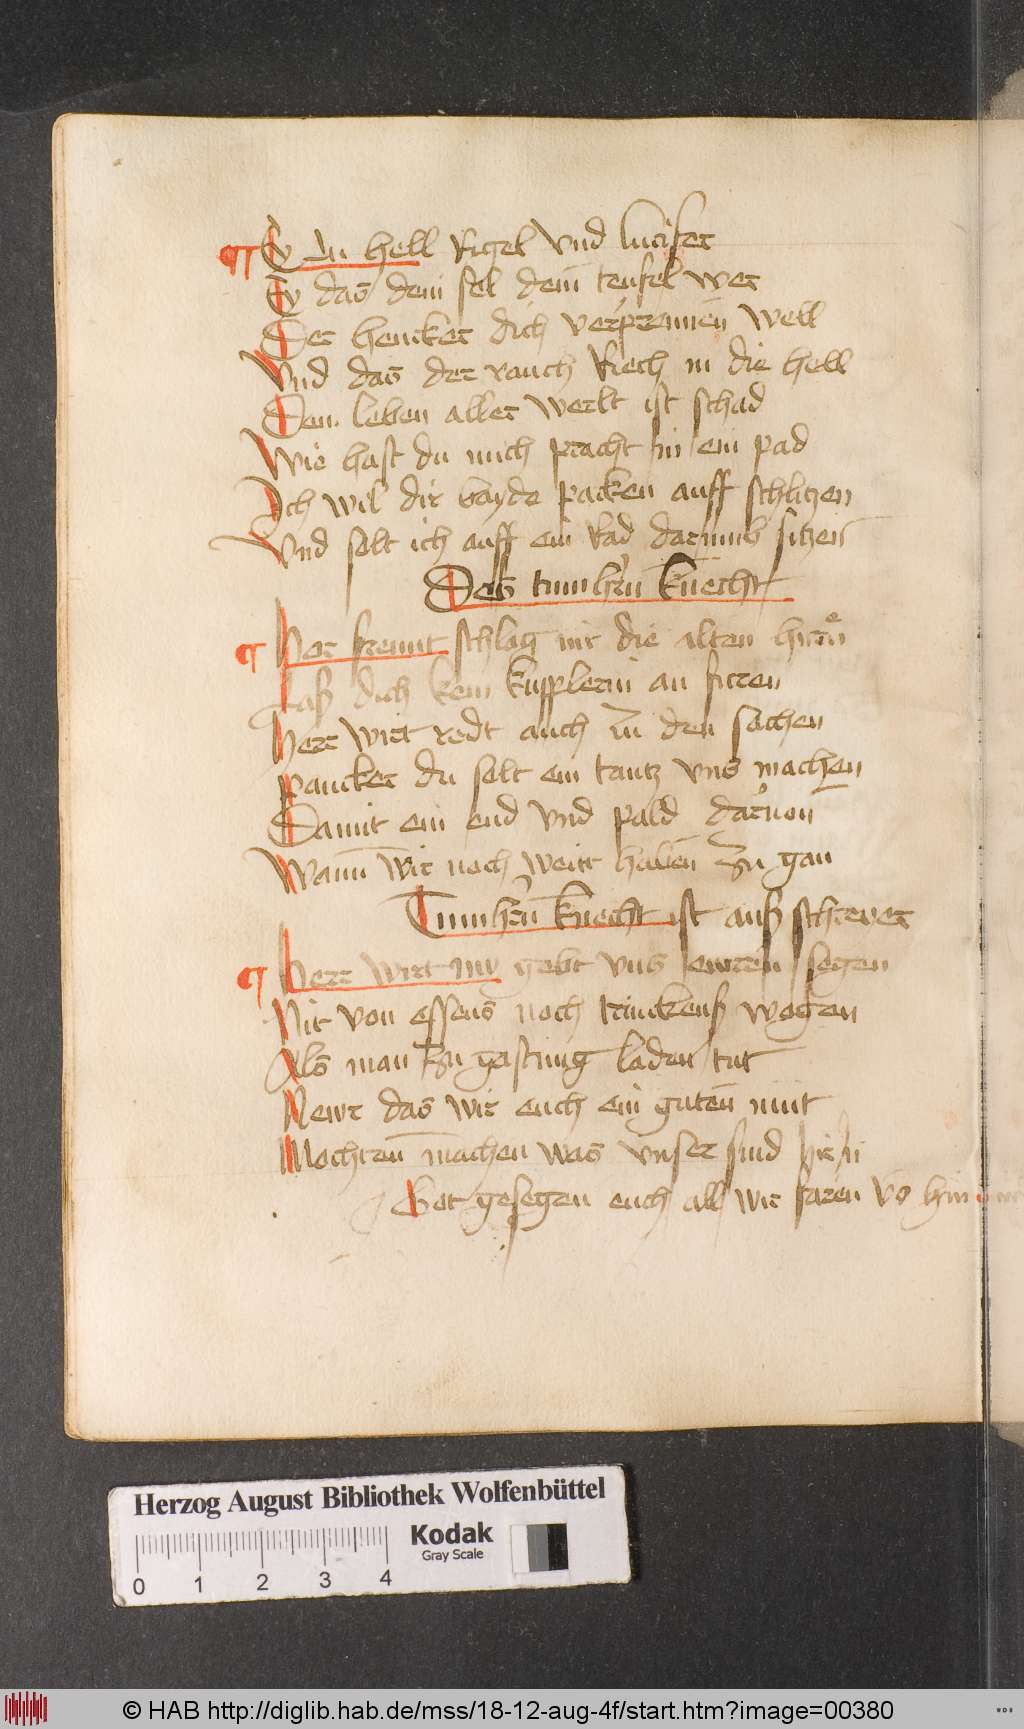 Ey du hell Rigel Vnd lucifer
Ey das dein sel dem teufel wer
Der hencker dich verprennen Well
Vnd das der rauch Riech in die hell
Dein leben aller Werlt ist schad
Wie hast du mich pracht in ein pad
Ich wil dir bayde packen auff schlitzen
Vnd solt ich auff ein Rad darumb sitzen
Des tumhern knecht
Her freunt schlag nit die alten hurn
Laß dich kein kupplerin an furen
Herr Wirt redt auch zu den sachen
Paucker du solt ein tantz vns machen
Damit ein end Vnd pald daruon
Wann Wir noch Weitt haben zu gan
Tumhern knecht ist auß schreyer
Herr Wirt nu gebt vns ewren segen
Nit von essens noch trinckens wegen
Als man zu gastung laden tut
Newr das wir euch ein guten mut
Mochten machen was vnser sind hirin
Got gesegen euch all wir faren do hin
Herzog August Bibliothek Wolfenbüttel
Kodak
Gray Scale
0 1 2 3 4
© HAB http://diglib.hab.de/mss/18-12-aug-4f/start.htm?image=00380